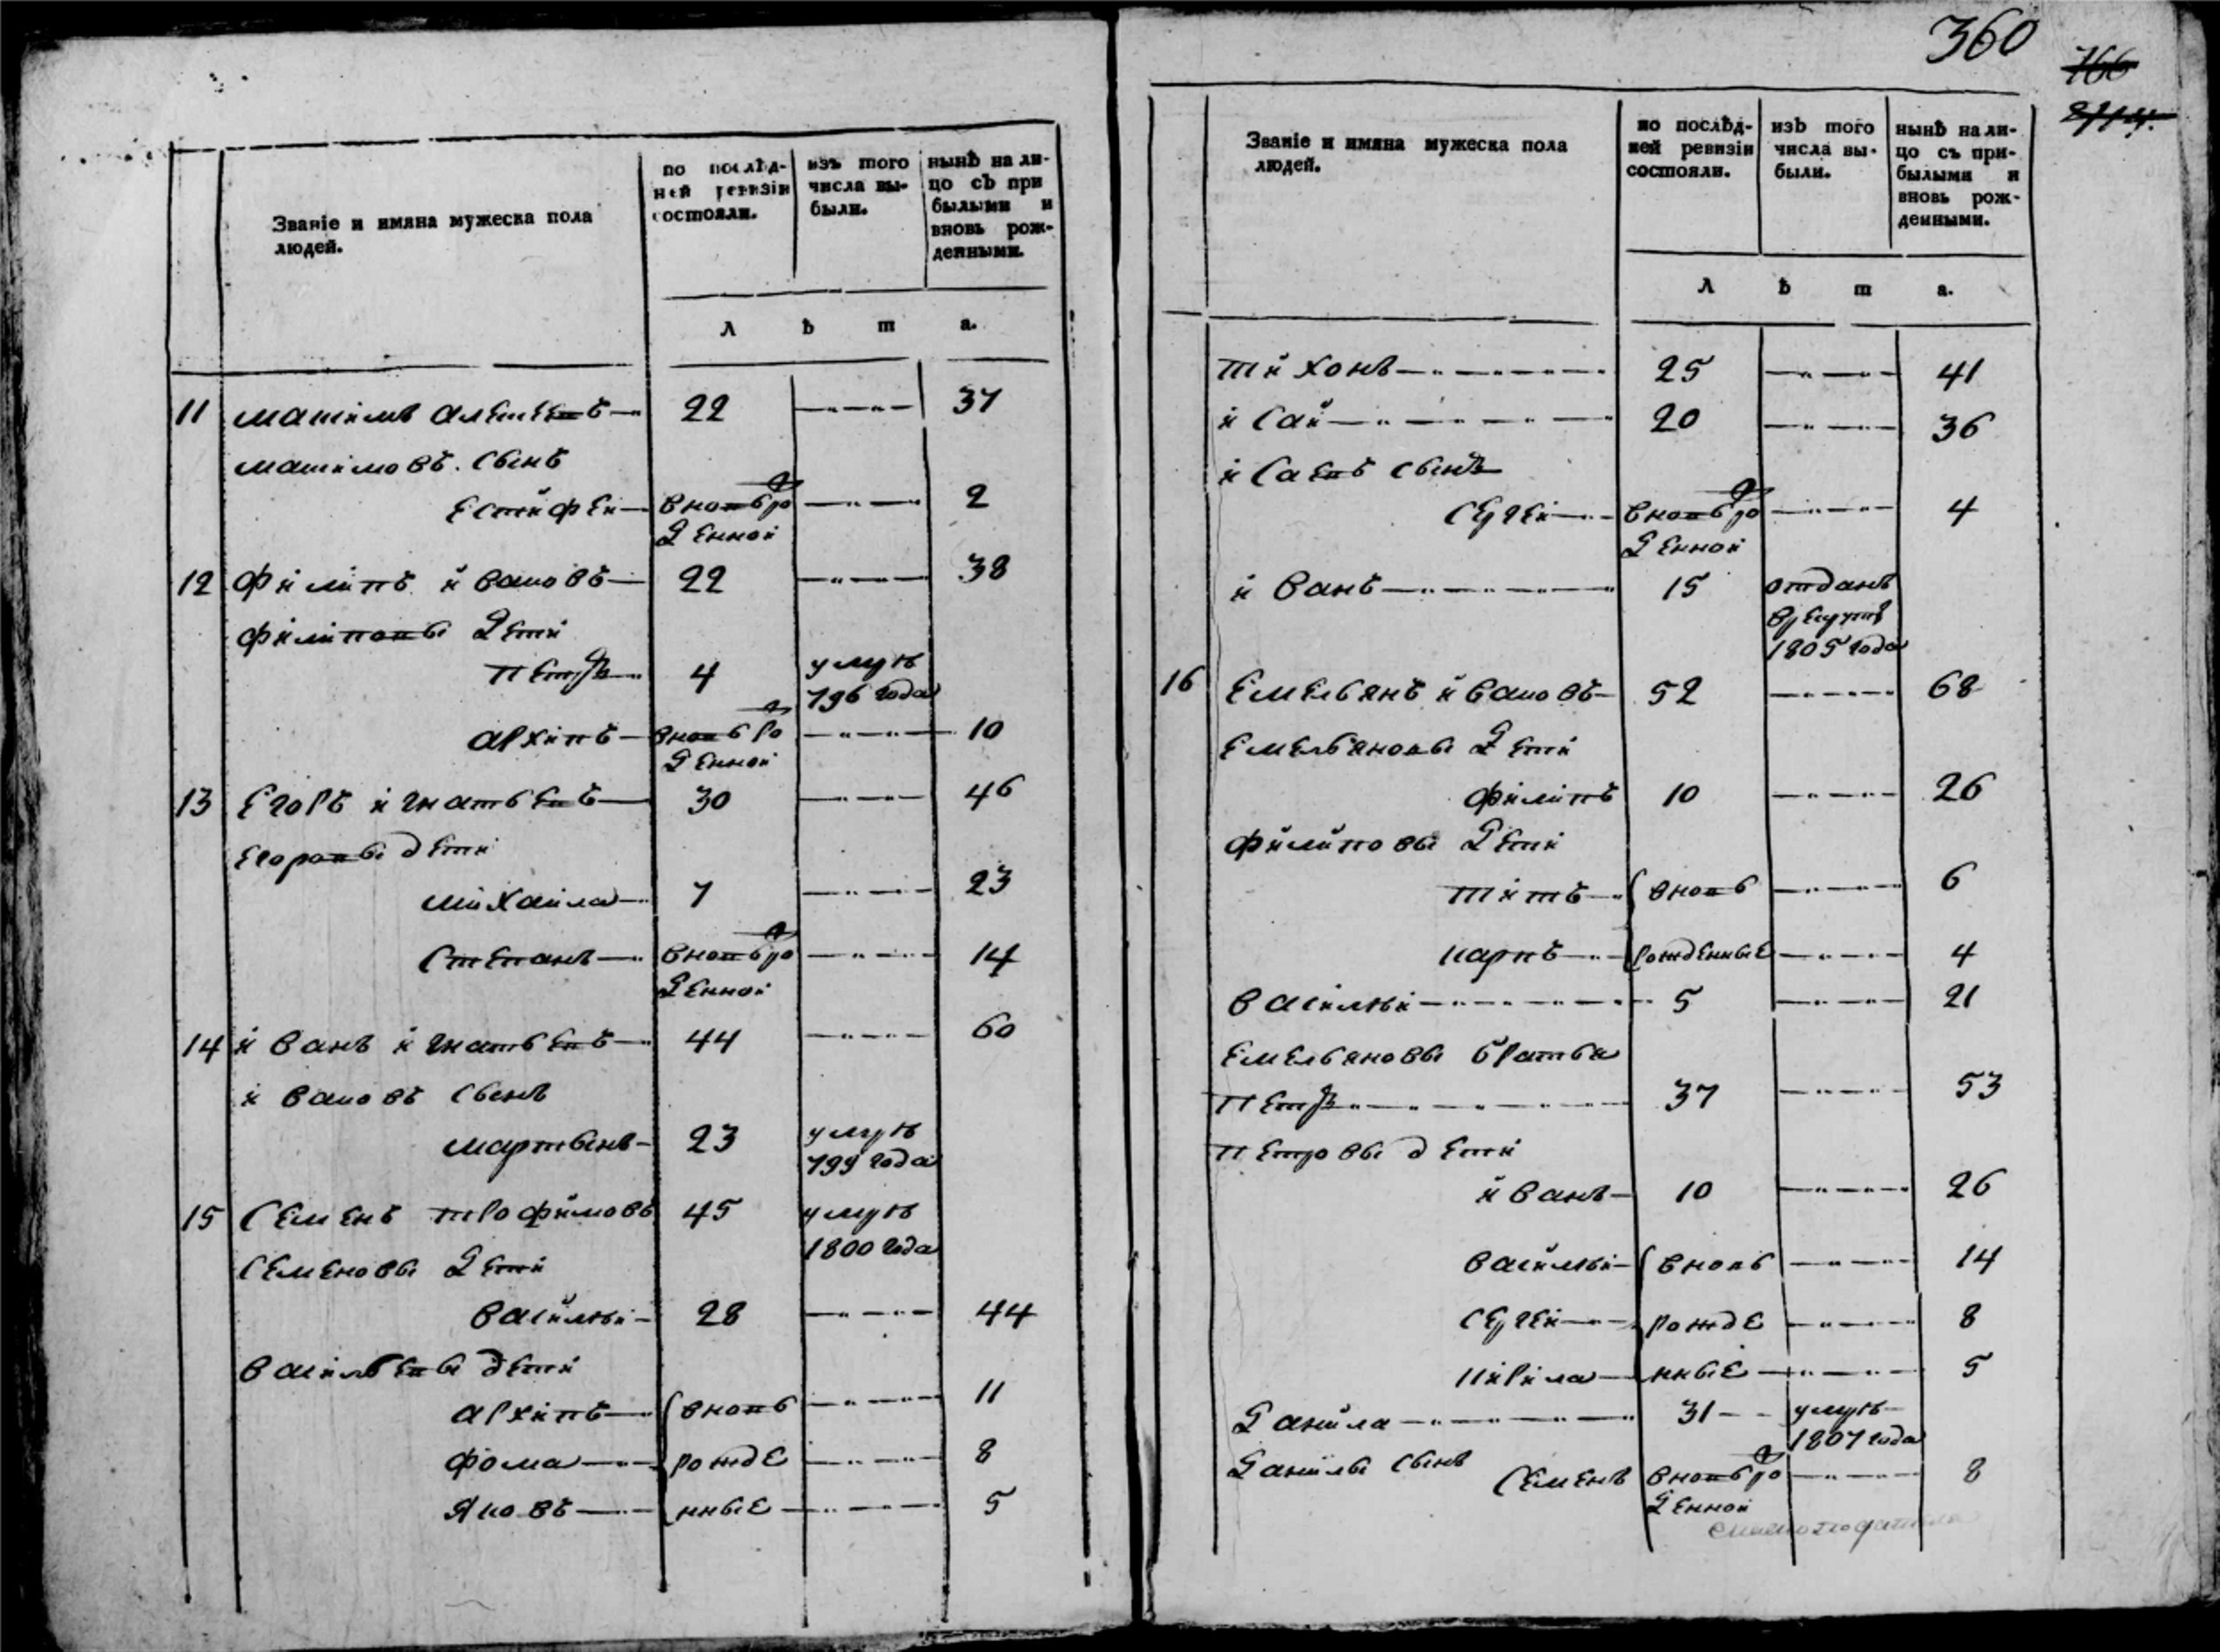 Званіе и имяна мужеска пола
людей.
по послѣд-
ней ревизіи
состояли.
изъ того
числа вы-
были.
нынѣ на ли-
цо съ при
былыми и
вновь рож-
денными.
л ѣ т а.
11 максимъ алексеевъ 22 37
максимовъ сынъ
естифеи вновь рож 2
денной
12 филипъ ивановъ 22 38
филиповы дети
петръ 4 умре
796 года
архипъ вновь рож 10
денной
13 егоръ игнатьевъ 30 46
егоровы дети
михаила 7 23
степанъ вновь рож 14
денной
14 иванъ игнатьевъ 44 60
ивановъ сынъ
мартынъ 23 умре
799 года
15 семенъ трофимовъ 45 умре
1800 года
семеновы дети
василеи 28 44
васильевы дети
архипъ вновь 11
фома рожде 8
яковъ нные 5
360
766
Званіе и имяна мужеска пола
людей.
по послѣд-
ней ревизіи
состояли.
изъ того
числа вы-
были.
нынѣ на ли-
цо съ при-
былыми и
вновь рож-
денными.
л ѣ т а.
тихонъ 25 41
исаи 20 36
исаевъ сынъ
сергеи вновь рож 4
денной
иванъ 15 отданъ
врекруты
1805 года
16 емельянъ ивановъ 52 68
емельяновы дети
филипъ 10 26
филиповы дети
титъ вновь 6
карпъ рожденные 4
василеи 5 21
емельяновы братья
петръ 37 53
петровы дети
иванъ 10 26
василеи вновь 14
сергеи рожде 8
кирила нные 5
данила 31 умре
1807 года
данилы сынъ
семенъ вновь рож 8
денной